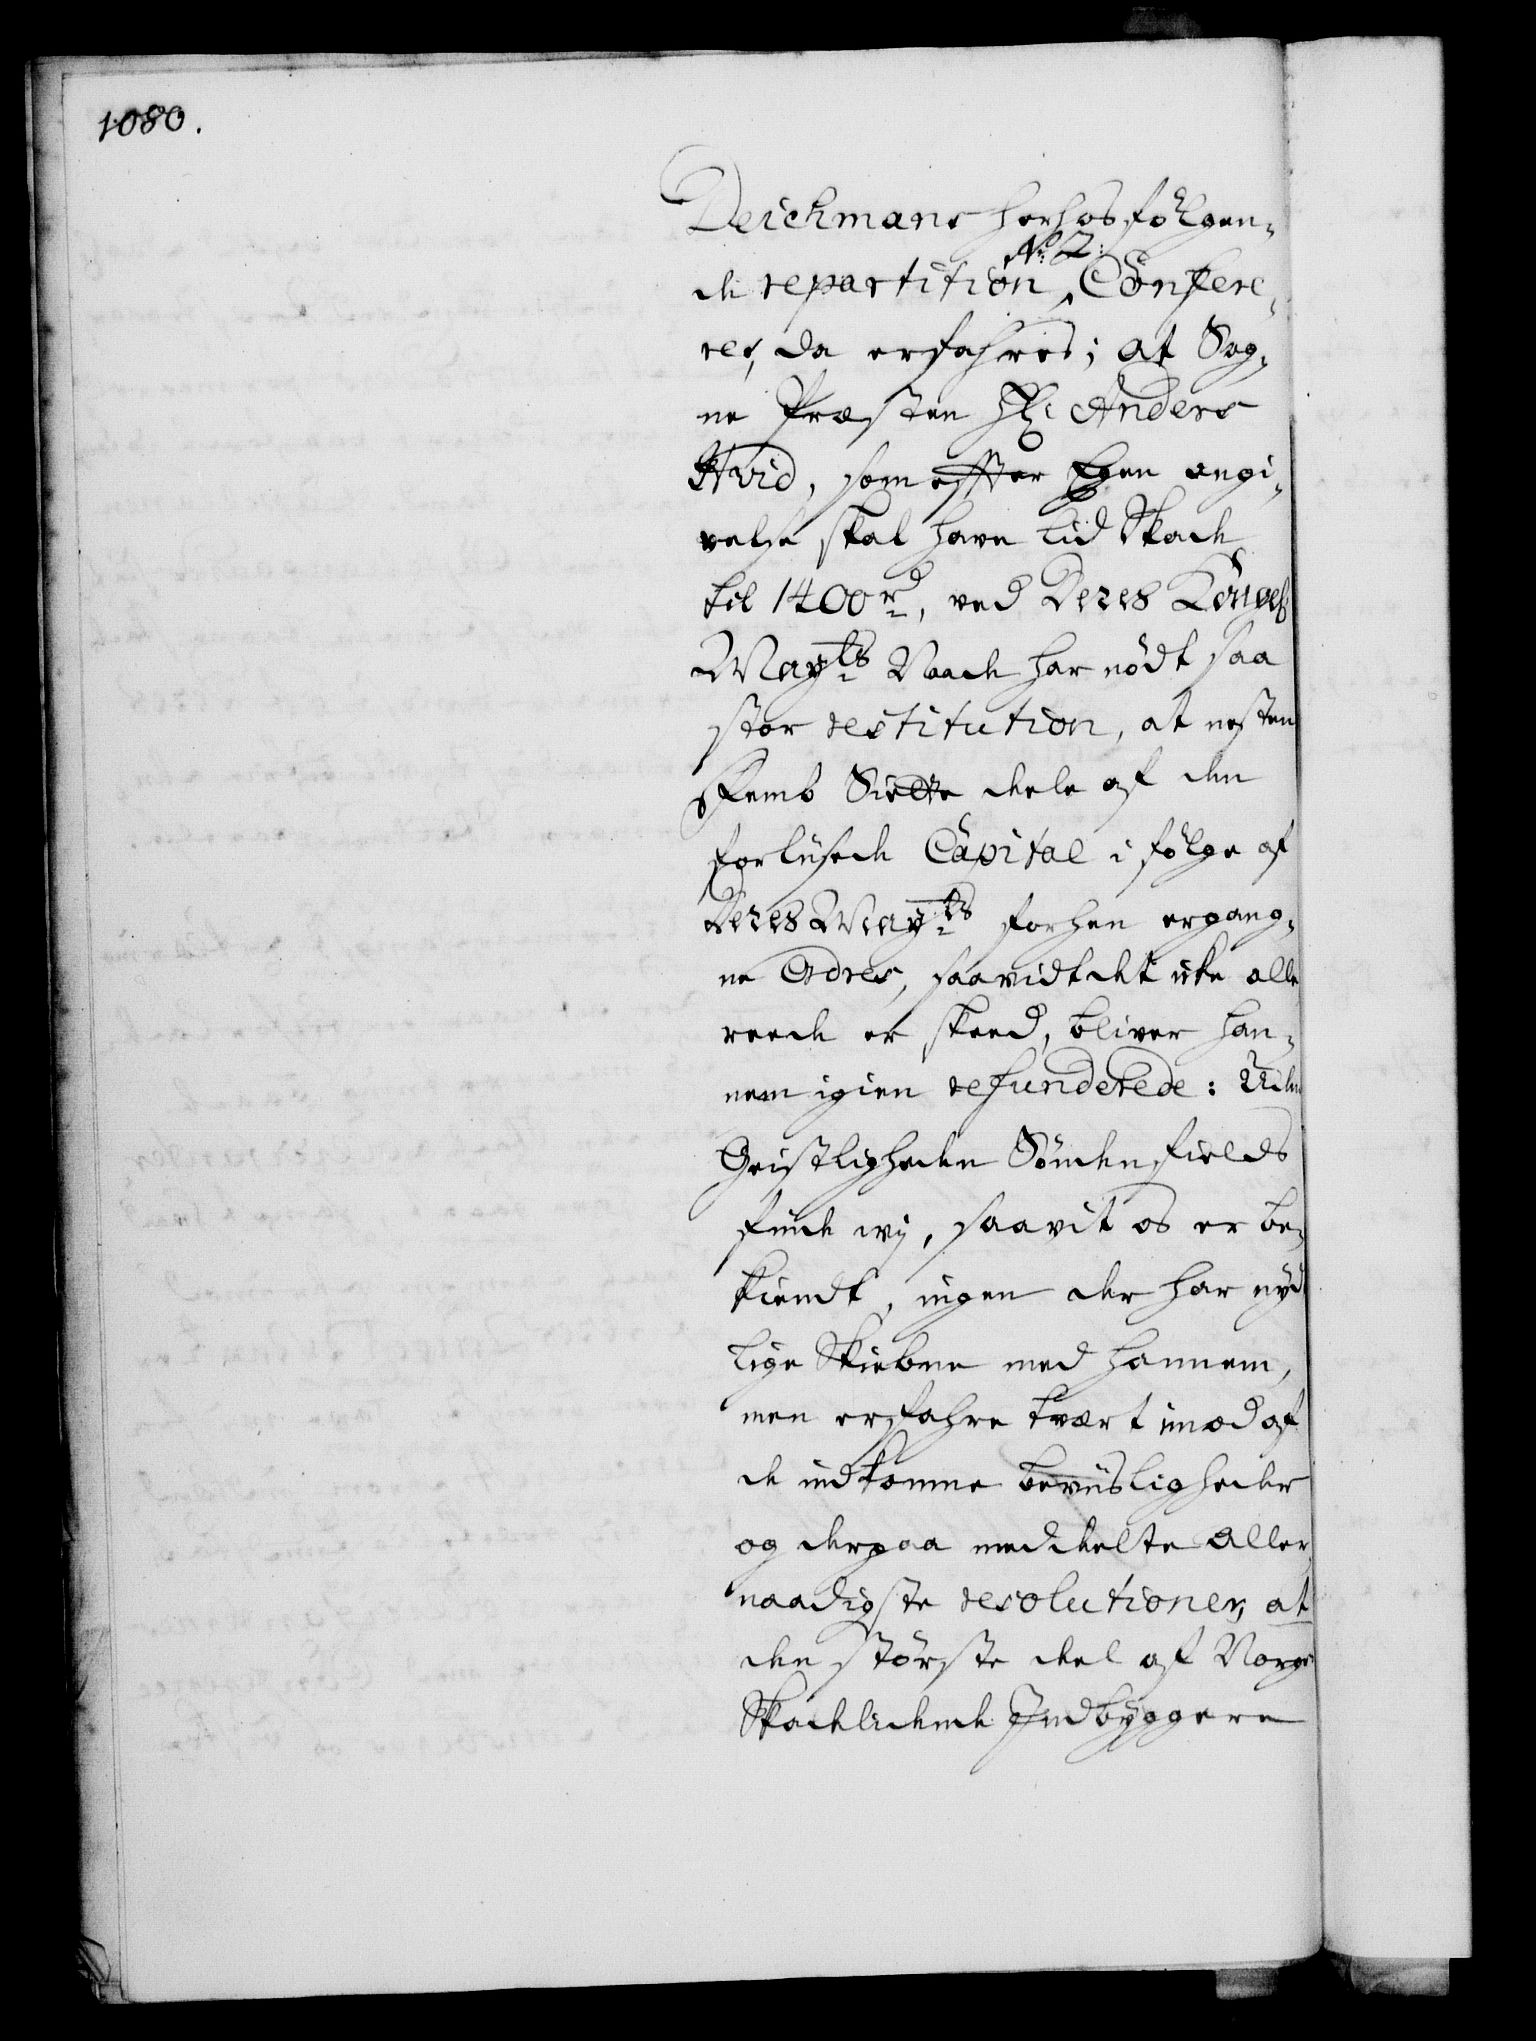 1080.
Deichmans herhos følgen¬
No 2:
de repartition, Confere¬
res, da erfahres; at Sog¬
ne Præsten Hr: Anders
Hvid, som effter Egen angi¬
velse skal have lid Skade
til 1400 rd, ved Deres Konges
Mayts Naade har nødt saa
stor restitution, at nesten
Femb Siette dele af den
forliisede Capital i følge af
Deres Mayts forhen ergang¬
ne Ordres, saavidt det icke alle
reede er skeed, bliver han¬
nem igien refunderede: Uden
Geistligheden Søndenfields
finde wij, saavit os er be¬
kiendt, ingen der har nyd
lige Skiebne med hannem,
men erfahre tvært imod af
de indkomne beviisligheder
og derpaa meddeelte Aller
naadigste resolutioner, at
den største deel af Norges
Skadelidende Indbyggere